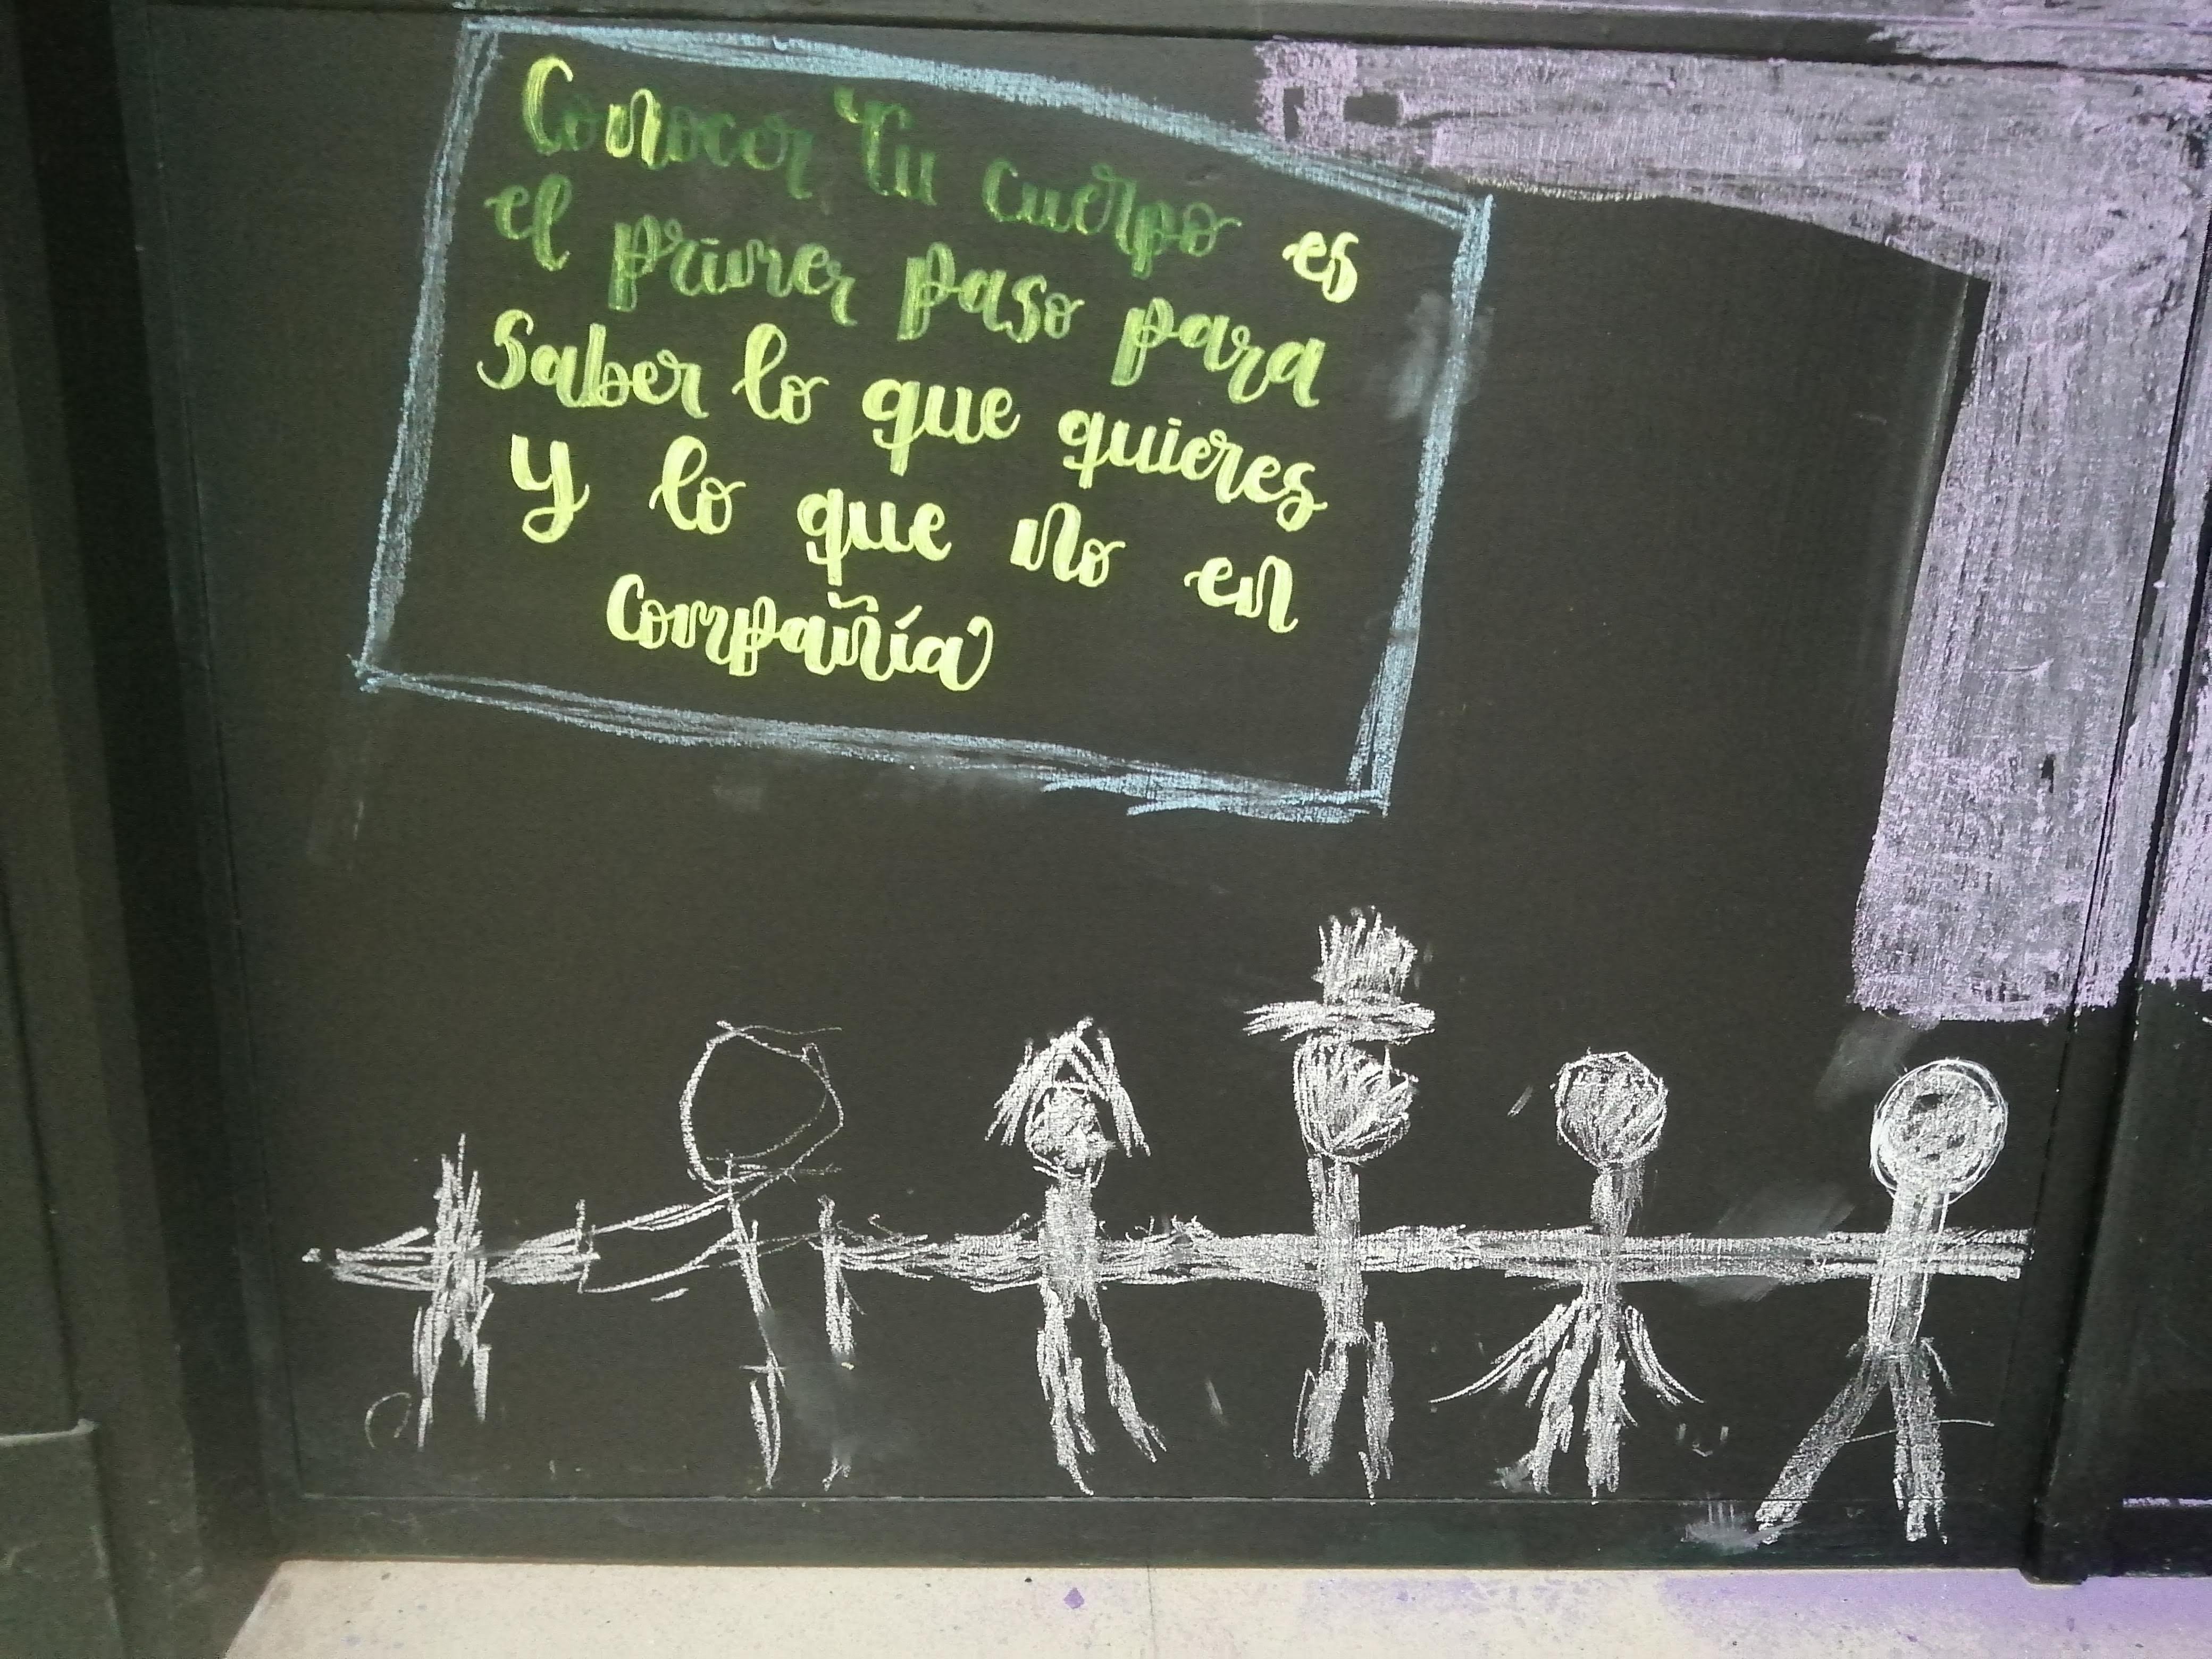 Conocer Tu cuerpo es
el primer paso para
Saber lo que quieres
y lo que no en
compañía